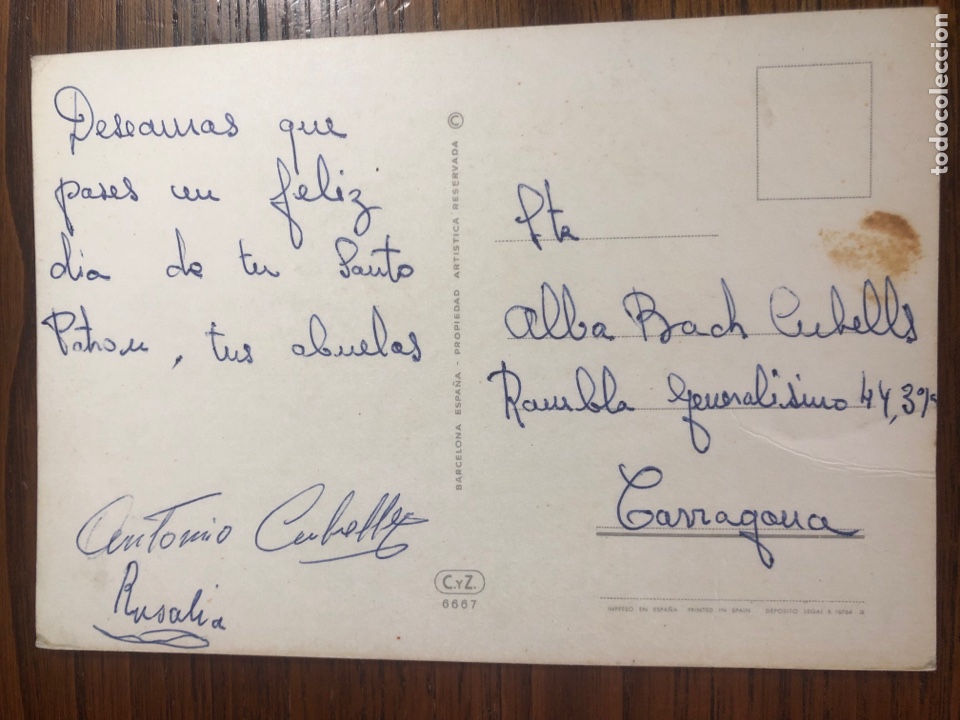 Deseamos que
pases un feliz
dia de tu Santo
Patrom, tus abuelos
Antonio Cubells
Rosalia
BARCELONA ESPAÑA - PROPIEDAD ARTISTICA RESERVADA ©
C.Y Z.
6667
Alba Bach Cubells
Rambla Generalisimo 44, 3º
Tarragona
IMPRESO EN ESPAÑA PRINTED IN SPAIN DEPOSITO LEGAL B.
todocoleccion